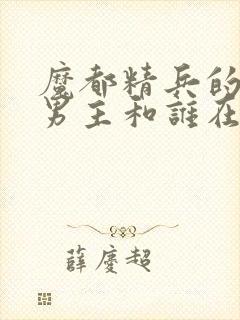 魔都精兵的
男主和誰在
薛慶超